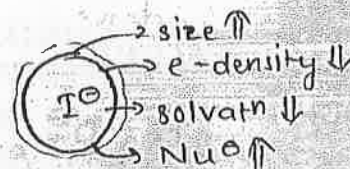 size ⇑
e-density ⇓
I⊖
solvatn ⇓
Nu⊖ ⇑